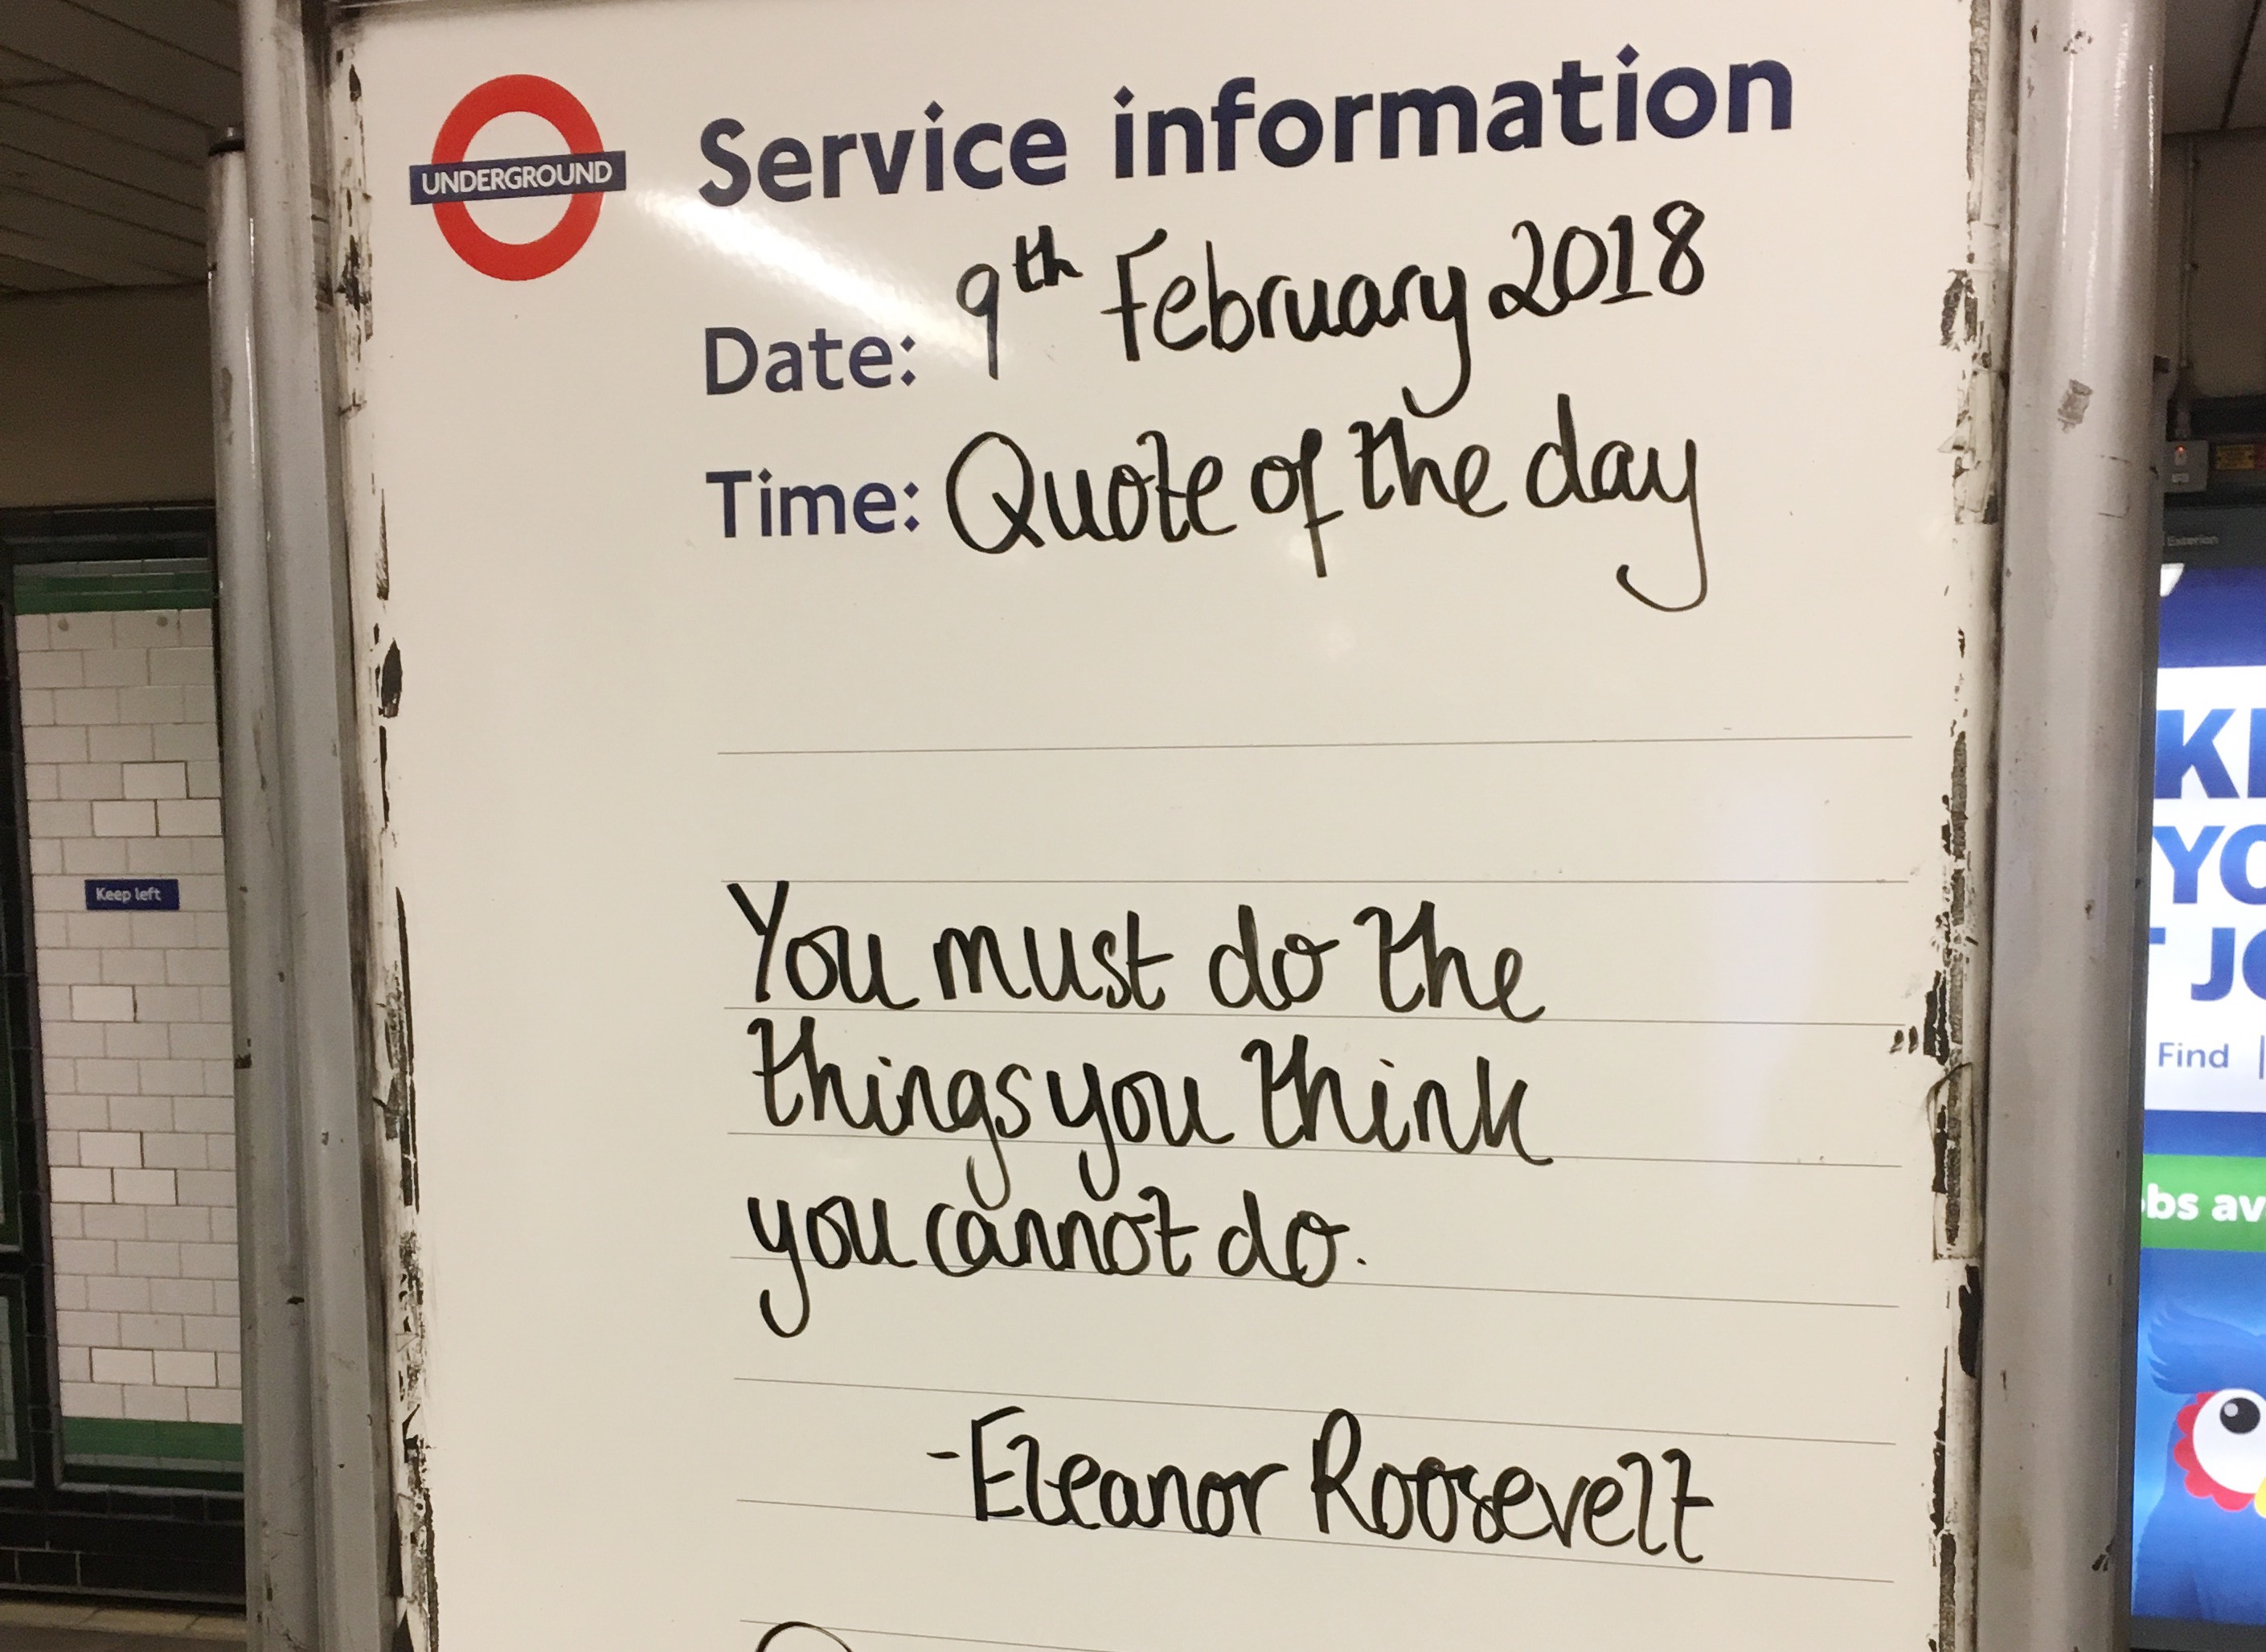 UNDERGROUND
Service information
Date: 9th February 2018
Time: Quote of the day
You must do the
things you think
you cannot do.
-Eleanor Roosevelt
Keep left
Exterion
KI
YO
T JO
Find
bs av